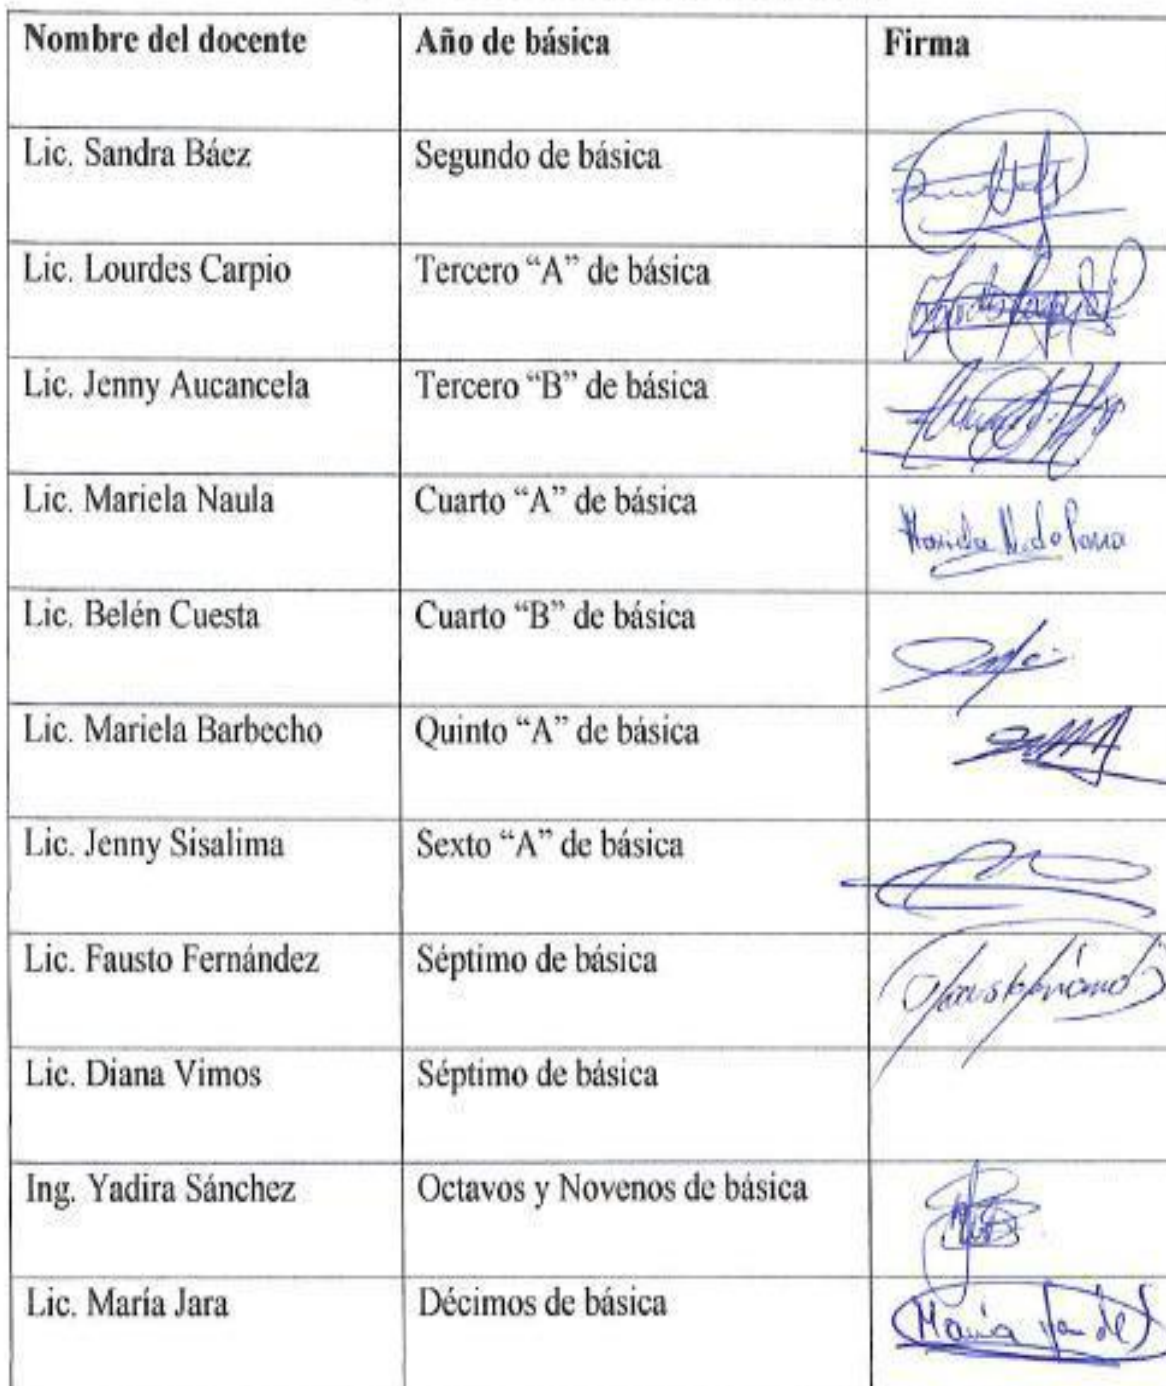 Nombre del docente Año de básica Firma
Lic. Sandra Báez Segundo de básica
Lic. Lourdes Carpio Tercero “A” de básica
Lic. Jenny Aucancela Tercero “B” de básica
Lic. Mariela Naula Cuarto “A” de básica Mariela N. de
Lic. Belén Cuesta Cuarto “B” de básica
Lic. Mariela Barbecho Quinto “A” de básica
Lic. Jenny Sisalima Sexto “A” de básica
Lic. Fausto Fernández Séptimo de básica
Lic. Diana Vimos Séptimo de básica
Ing. Yadira Sánchez Octavos y Novenos de básica
Lic. María Jara Décimos de básica María